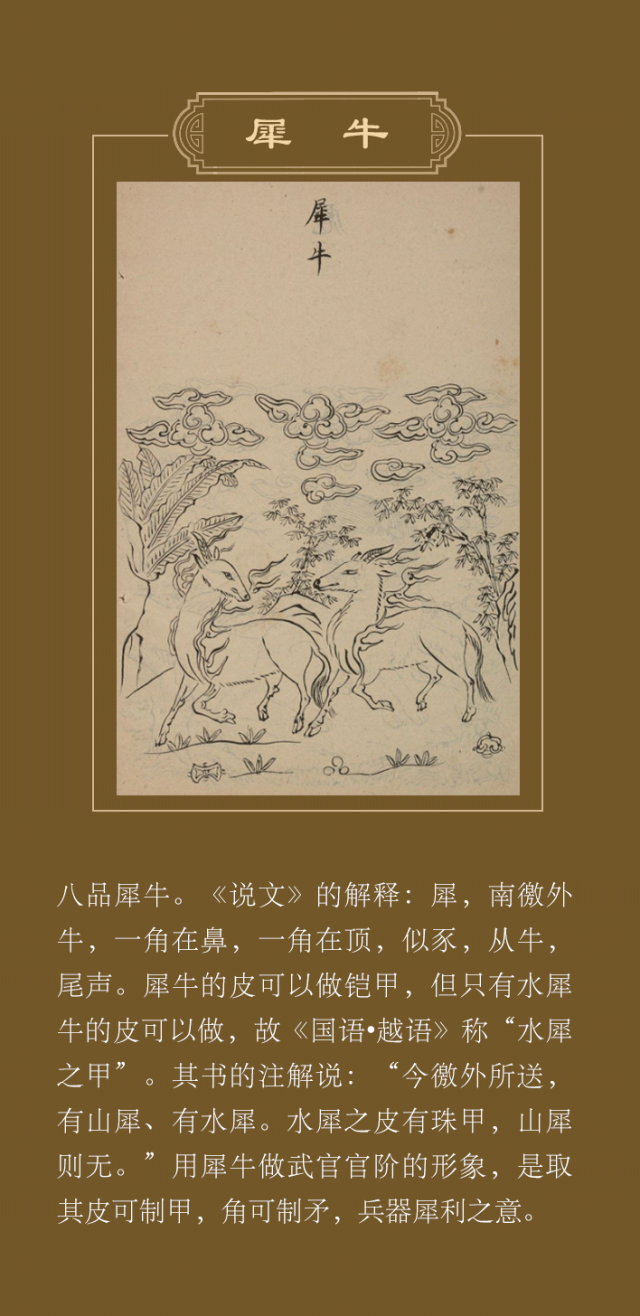 犀 牛
犀牛
八品犀牛。《说文》的解释：犀，南徼外
牛，一角在鼻，一角在顶，似豕，从牛，
尾声。犀牛的皮可以做铠甲，但只有水犀
牛的皮可以做，故《国语•越语》称“水犀
之甲”。其书的注解说：“今徼外所送，
有山犀、有水犀。水犀之皮有珠甲，山犀
则无。”用犀牛做武官官阶的形象，是取
其皮可制甲，角可制矛，兵器犀利之意。